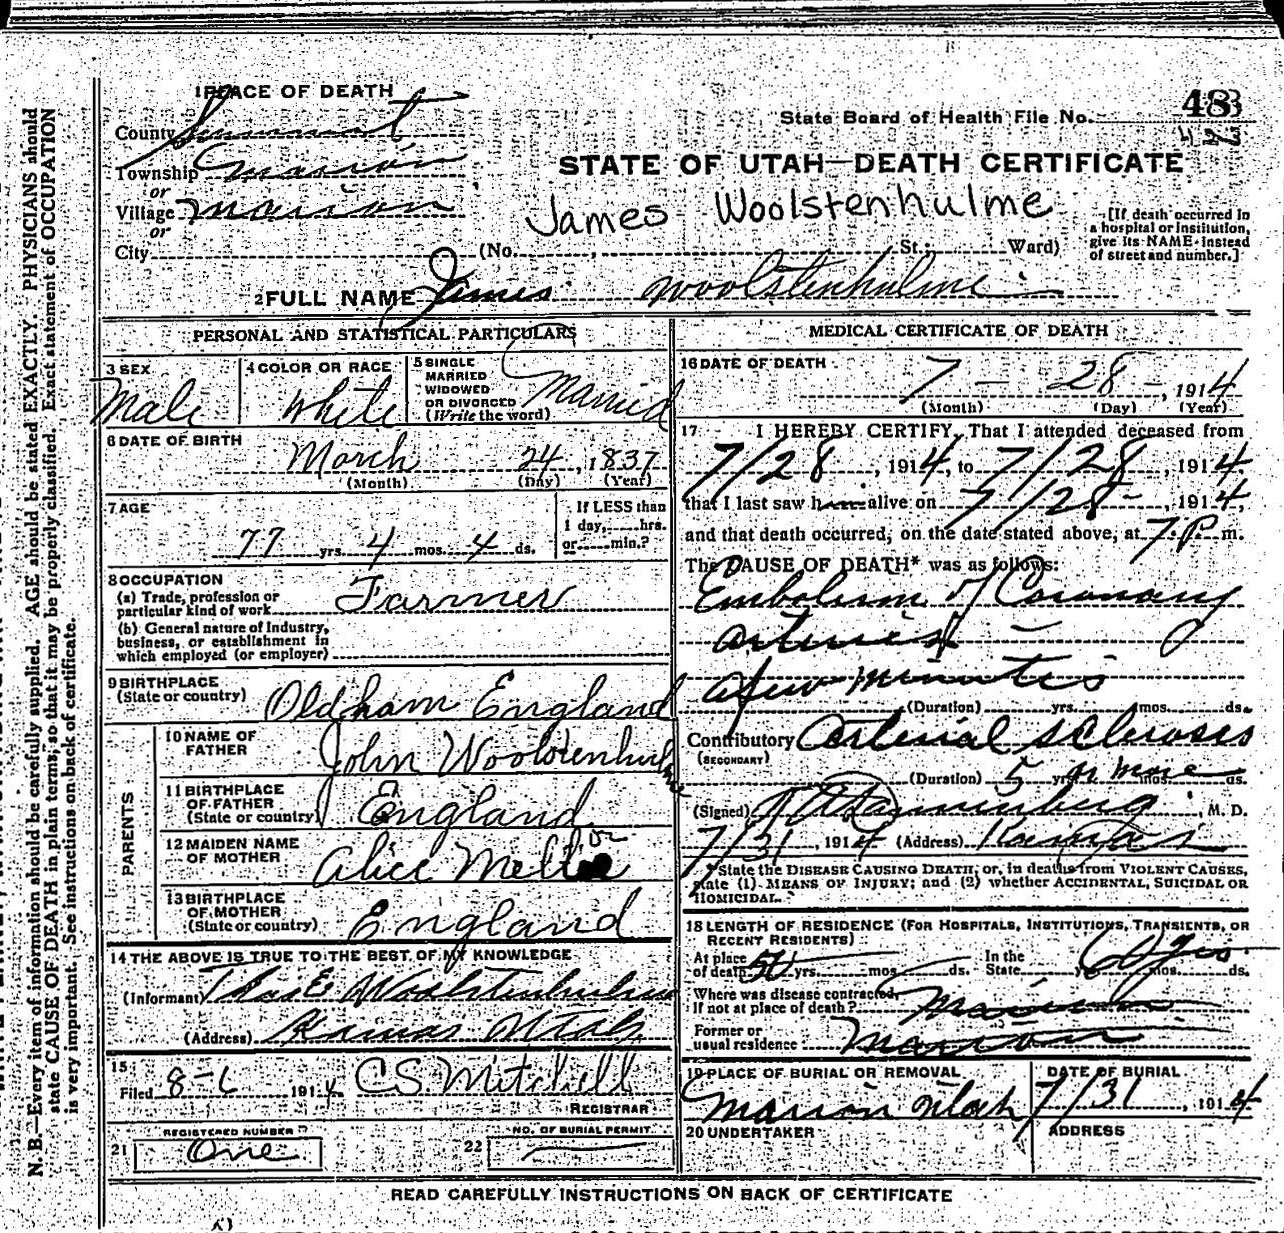 1 PLACE OF DEATH
County Summit
Township Marion
or
Village Marion
or
City (No. , St.; Ward)
State Board of Health File No.
48
STATE OF UTAH—DEATH CERTIFICATE
James Woolstenhulme
[If death occurred in
a hospital or institution,
give its NAME instead
of street and number.]
2 FULL NAME James Woolstenhulme
PERSONAL AND STATISTICAL PARTICULARS
3 SEX
Male
4 COLOR OR RACE
White
5 SINGLE
MARRIED
WIDOWED
OR DIVORCED
(Write the word)
Married
6 DATE OF BIRTH
March 24, 1837
(Month) (Day) (Year)
7 AGE
77 yrs. 4 mos. 4 ds.
If LESS than
1 day, hrs.
or min.?
8 OCCUPATION
(a) Trade, profession or
particular kind of work Farmer
(b) General nature of industry,
business, or establishment in
which employed (or employer)
9 BIRTHPLACE
(State or country) Oldham England
PARENTS
10 NAME OF
FATHER
John Woolstenhulme
11 BIRTHPLACE
OF FATHER
(State or country) England
12 MAIDEN NAME
OF MOTHER
Alice Mellor
13 BIRTHPLACE
OF MOTHER
(State or country) England
14 THE ABOVE IS TRUE TO THE BEST OF MY KNOWLEDGE
(Informant) Thos E Woolstenhulme
(Address) Kamas Utah
15
Filed 8-6 1914 C.S. Mitchell
REGISTRAR
REGISTERED NUMBER
21 One
NO. OF BURIAL PERMIT
22
MEDICAL CERTIFICATE OF DEATH
16 DATE OF DEATH
7 — 28 —, 1914
(Month) (Day) (Year)
17 I HEREBY CERTIFY, That I attended deceased from
7/28, 1914, to 7/28, 1914
that I last saw h alive on 7/28-, 1914,
and that death occurred, on the date stated above, at 7.P. m.
The CAUSE OF DEATH* was as follows:
Embolism of Coronary
arteries —
a few minutes
(Duration) yrs. mos. ds.
Contributory Arterial sclerosis
(SECONDARY)
(Duration) 5 yrs. or more mos. ds.
(Signed) , M. D.
7/31, 1914 (Address) Kamas
* State the DISEASE CAUSING DEATH; or, in deaths from VIOLENT CAUSES,
state (1) MEANS OF INJURY; and (2) whether ACCIDENTAL, SUICIDAL OR
HOMICIDAL.
18 LENGTH OF RESIDENCE (FOR HOSPITALS, INSTITUTIONS, TRANSIENTS, OR
RECENT RESIDENTS)
At place
of death yrs. mos. ds.
In the
State yrs. mos. ds.
Where was disease contracted,
if not at place of death? Marion
Former or
usual residence Marion
19 PLACE OF BURIAL OR REMOVAL
Marion Utah
DATE OF BURIAL
7/31, 1914
20 UNDERTAKER
ADDRESS
READ CAREFULLY INSTRUCTIONS ON BACK OF CERTIFICATE
N. B.—Every item of information should be carefully supplied. AGE should be stated EXACTLY. PHYSICIANS should
state CAUSE OF DEATH in plain terms, so that it may be properly classified. Exact statement of OCCUPATION
is very important. See instructions on back of certificate.